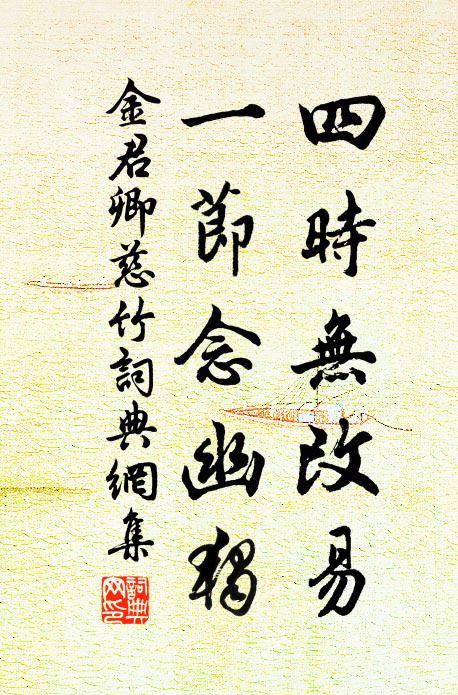 四時無改易
一節念幽獨
金君卿慈竹詞典網集
詞典網印